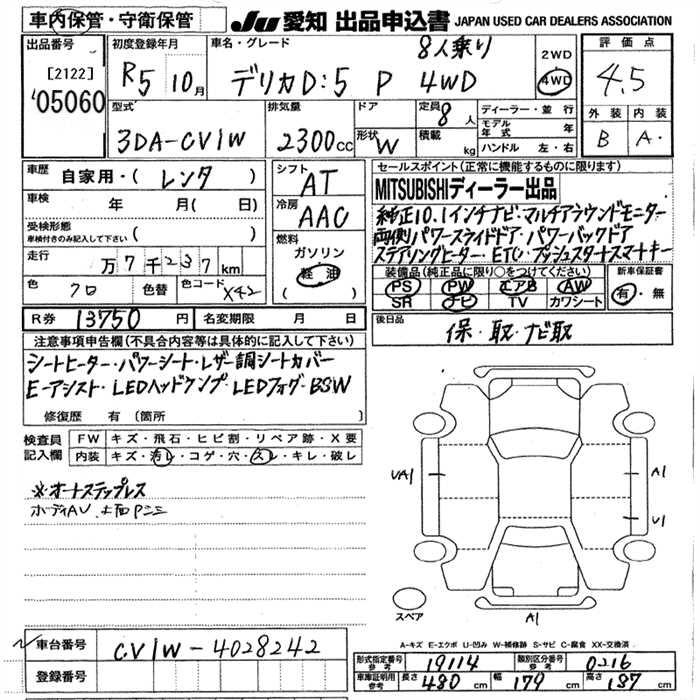 車内保管・守衛保管
JU 愛知 出品申込書 JAPAN USED CAR DEALERS ASSOCIATION
出品番号
[2122]
05060
初度登録年月
R5 10月
車名・グレード
8人乗り
デリカD:5 P 4WD
2WD
4WD
評価点
4.5
外装 内装
B A
型式
3DA-CV1W
排気量
2300cc
ドア
形状 W
定員 8人
積載 kg
ディーラー・並行
モデル年式 年
ハンドル 左・右
車歴 自家用・( レンタ )
車検 年 月( 日)
受検形態
車検付きのみ記入して下さい
( )
走行 万7千237km
色 クロ 色替 色コード X42
シフト
AT
冷房
AAC
燃料
ガソリン
軽油
セールスポイント(正常に機能するものに限ります)
MITSUBISHIディーラー出品
純正10.1インチナビ・マルチアラウンドモニター
両側パワースライドドア・パワーバックドア
ステアリングヒーター・ETC・プッシュスタートスマートキー
装備品(純正品に限り○をつけてください)
PS PW エアB AW
SR ナビ TV カワシート
新車保証書
有・無
R券 13750円 名変期限 月 日
後日品
保・取・ナビ取
注意事項申告欄(不具合内容等は具体的に記入して下さい)
シートヒーター・パワーシート・レザー調シートカバー
E-アシスト・LEDヘッドランプ・LEDフォグ・BSW
修復歴 有(箇所
検査員記入欄
FW キズ・飛石・ヒビ割・リペア跡・X要
内装 キズ・汚レ・コゲ・穴・スレ・キレ・破レ
※オートステップレス
ボディAU
UA1
A1
U1
A1
スペア
A-キズ E-エクボ U-凹み W-補修跡 S-サビ C-腐食 XX-交換済
車台番号 CV1W-4028242
登録番号
形式指定番号 参考 19114 類別区分番号 参考 0216
車庫証明用 参考 長さ 480cm 幅 179cm 高さ 187cm